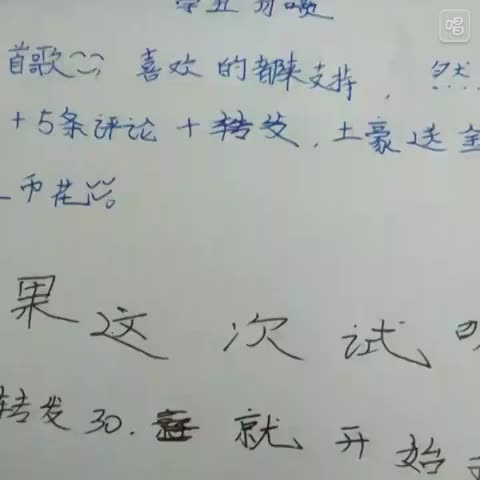 唱
首歌 喜欢的都来支持,然
+5条评论+转发,土豪送金
币花
果这次试
转发30.就开始